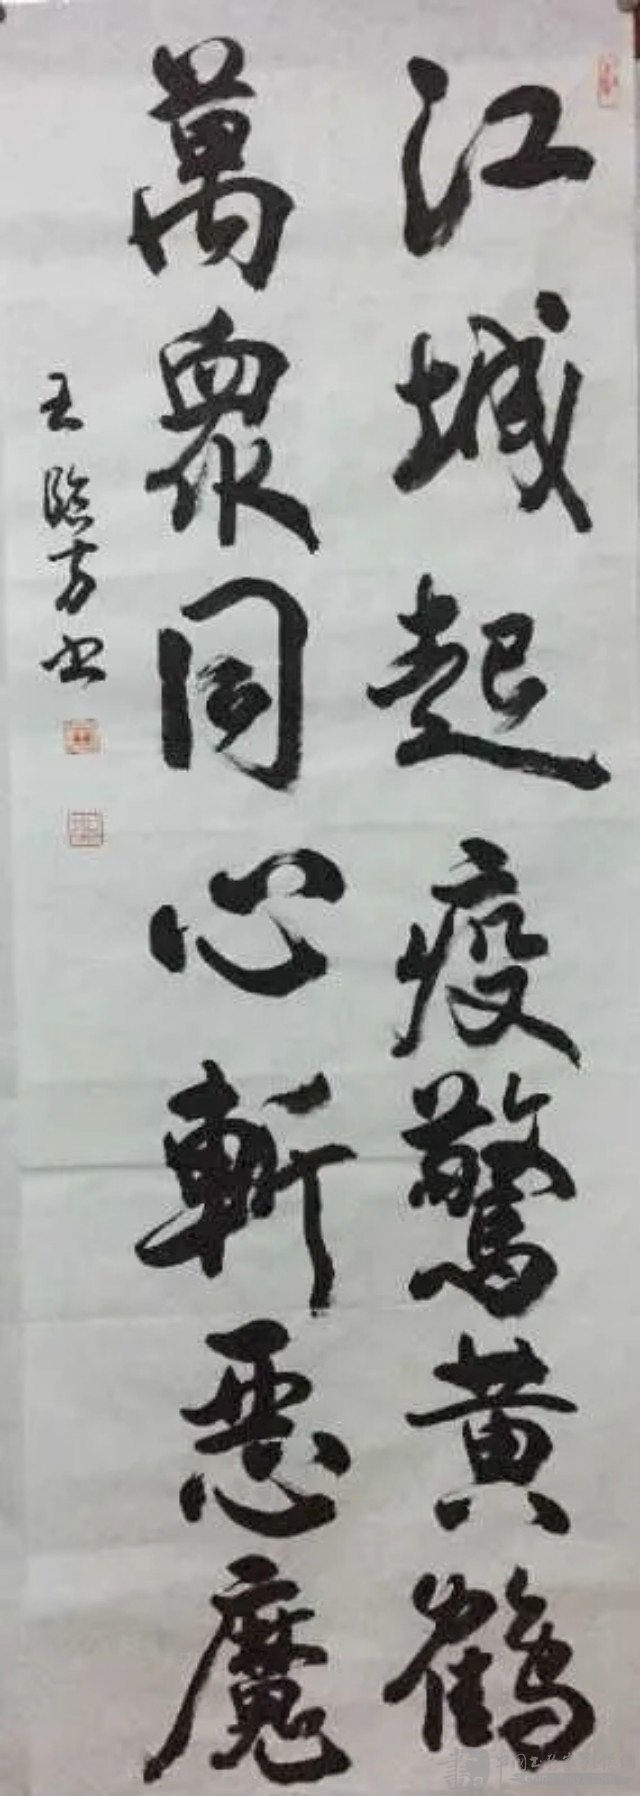 江城起疫驚黄鶴
萬眾同心斬惡魔
王臨方书